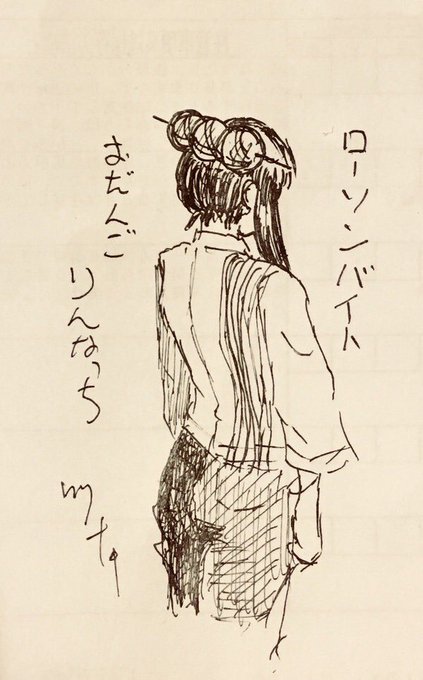 ローソンバイト
おだんご
りんなっち